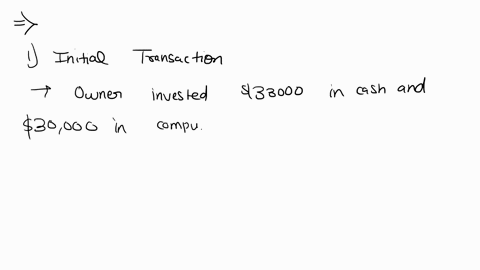 ⇒
1) Initial Transaction
→ Owner invested $33000 in cash and
$30,000 in compu.